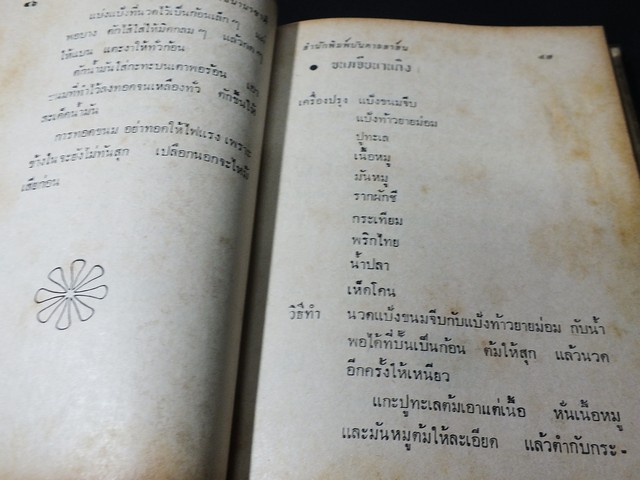 ๔๖
แบ่งแป้งที่นวดไว้เป็นก้อนเล็กๆ แผ่
พอบาง ตักไส้ใส่ให้มิดกลมๆ แล้วกดๆ
ให้แบน แตะงาให้ทั่วก้อน
ตักน้ำมันใส่กะทะบนเตาพอร้อน เอา
ขนมที่ทำไว้ลงทอดจนเหลืองทั่ว ตักขึ้นให้
สะเด็ดน้ำมัน
การทอดขนม อย่าทอดให้ไฟแรง เพราะ
ข้างในจะยังไม่ทันสุก เปลือกนอกจะไหม้
เสียก่อน
สำนักพิมพ์บันดาลสาส์น
๔๗
เครื่องปรุง แป้งขนมจีบ
แป้งท้าวยายม่อม
ปูทะเล
เนื้อหมู
มันหมู
รากผักชี
กระเทียม
พริกไทย
น้ำปลา
เห็ดโคน
วิธีทำ นวดแป้งขนมจีบกับแป้งท้าวยายม่อม กับน้ำ
พอได้ที่ปั้นเป็นก้อน ต้มให้สุก แล้วนวด
อีกครั้งให้เหนียว
แกะปูทะเลต้มเอาแต่เนื้อ หั่นเนื้อหมู
และมันหมูต้มให้ละเอียด แล้วตำกับกระ-